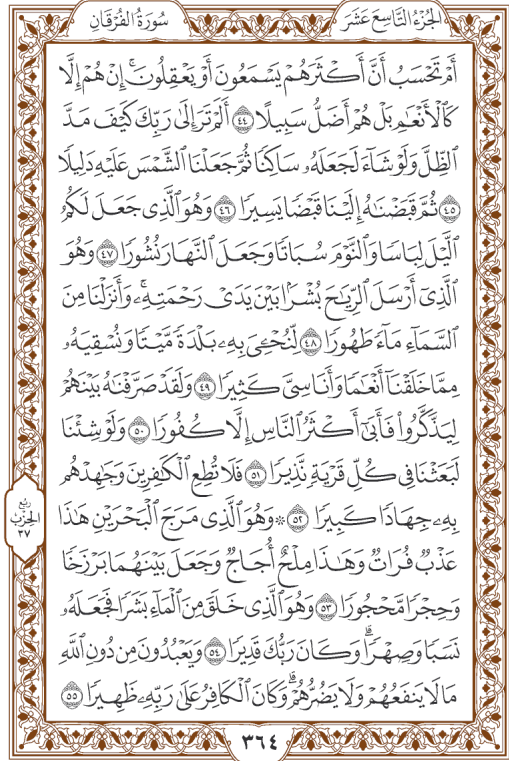 الجُزْءُ التَّاسِعَ عَشَرَ
سُورَةُ الفُرْقَانِ
أَمْ تَحْسَبُ أَنَّ أَكْثَرَهُمْ يَسْمَعُونَ أَوْ يَعْقِلُونَ ۚ إِنْ هُمْ إِلَّا
كَٱلْأَنْعَٰمِ بَلْ هُمْ أَضَلُّ سَبِيلًا ٤٤ أَلَمْ تَرَ إِلَىٰ رَبِّكَ كَيْفَ مَدَّ
ٱلظِّلَّ وَلَوْ شَآءَ لَجَعَلَهُۥ سَاكِنًا ثُمَّ جَعَلْنَا ٱلشَّمْسَ عَلَيْهِ دَلِيلًا
٤٥ ثُمَّ قَبَضْنَٰهُ إِلَيْنَا قَبْضًا يَسِيرًا ٤٦ وَهُوَ ٱلَّذِى جَعَلَ لَكُمُ
ٱلَّيْلَ لِبَاسًا وَٱلنَّوْمَ سُبَاتًا وَجَعَلَ ٱلنَّهَارَ نُشُورًا ٤٧ وَهُوَ
ٱلَّذِىٓ أَرْسَلَ ٱلرِّيَٰحَ بُشْرًۢا بَيْنَ يَدَىْ رَحْمَتِهِۦ ۚ وَأَنزَلْنَا مِنَ
ٱلسَّمَآءِ مَآءً طَهُورًا ٤٨ لِّنُحْـِۧىَ بِهِۦ بَلْدَةً مَّيْتًا وَنُسْقِيَهُۥ
مِمَّا خَلَقْنَآ أَنْعَٰمًا وَأَنَاسِىَّ كَثِيرًا ٤٩ وَلَقَدْ صَرَّفْنَٰهُ بَيْنَهُمْ
لِيَذَّكَّرُوا۟ فَأَبَىٰٓ أَكْثَرُ ٱلنَّاسِ إِلَّا كُفُورًا ٥٠ وَلَوْ شِئْنَا
لَبَعَثْنَا فِى كُلِّ قَرْيَةٍ نَّذِيرًا ٥١ فَلَا تُطِعِ ٱلْكَٰفِرِينَ وَجَٰهِدْهُم
بِهِۦ جِهَادًا كَبِيرًا ٥٢ ۞ وَهُوَ ٱلَّذِى مَرَجَ ٱلْبَحْرَيْنِ هَٰذَا
عَذْبٌ فُرَاتٌ وَهَٰذَا مِلْحٌ أُجَاجٌ وَجَعَلَ بَيْنَهُمَا بَرْزَخًا
وَحِجْرًا مَّحْجُورًا ٥٣ وَهُوَ ٱلَّذِى خَلَقَ مِنَ ٱلْمَآءِ بَشَرًا فَجَعَلَهُۥ
نَسَبًا وَصِهْرًا ۗ وَكَانَ رَبُّكَ قَدِيرًا ٥٤ وَيَعْبُدُونَ مِن دُونِ ٱللَّهِ
مَا لَا يَنفَعُهُمْ وَلَا يَضُرُّهُمْ ۗ وَكَانَ ٱلْكَافِرُ عَلَىٰ رَبِّهِۦ ظَهِيرًا ٥٥
رُبْع
الحِزْبِ
٣٧
٣٦٤